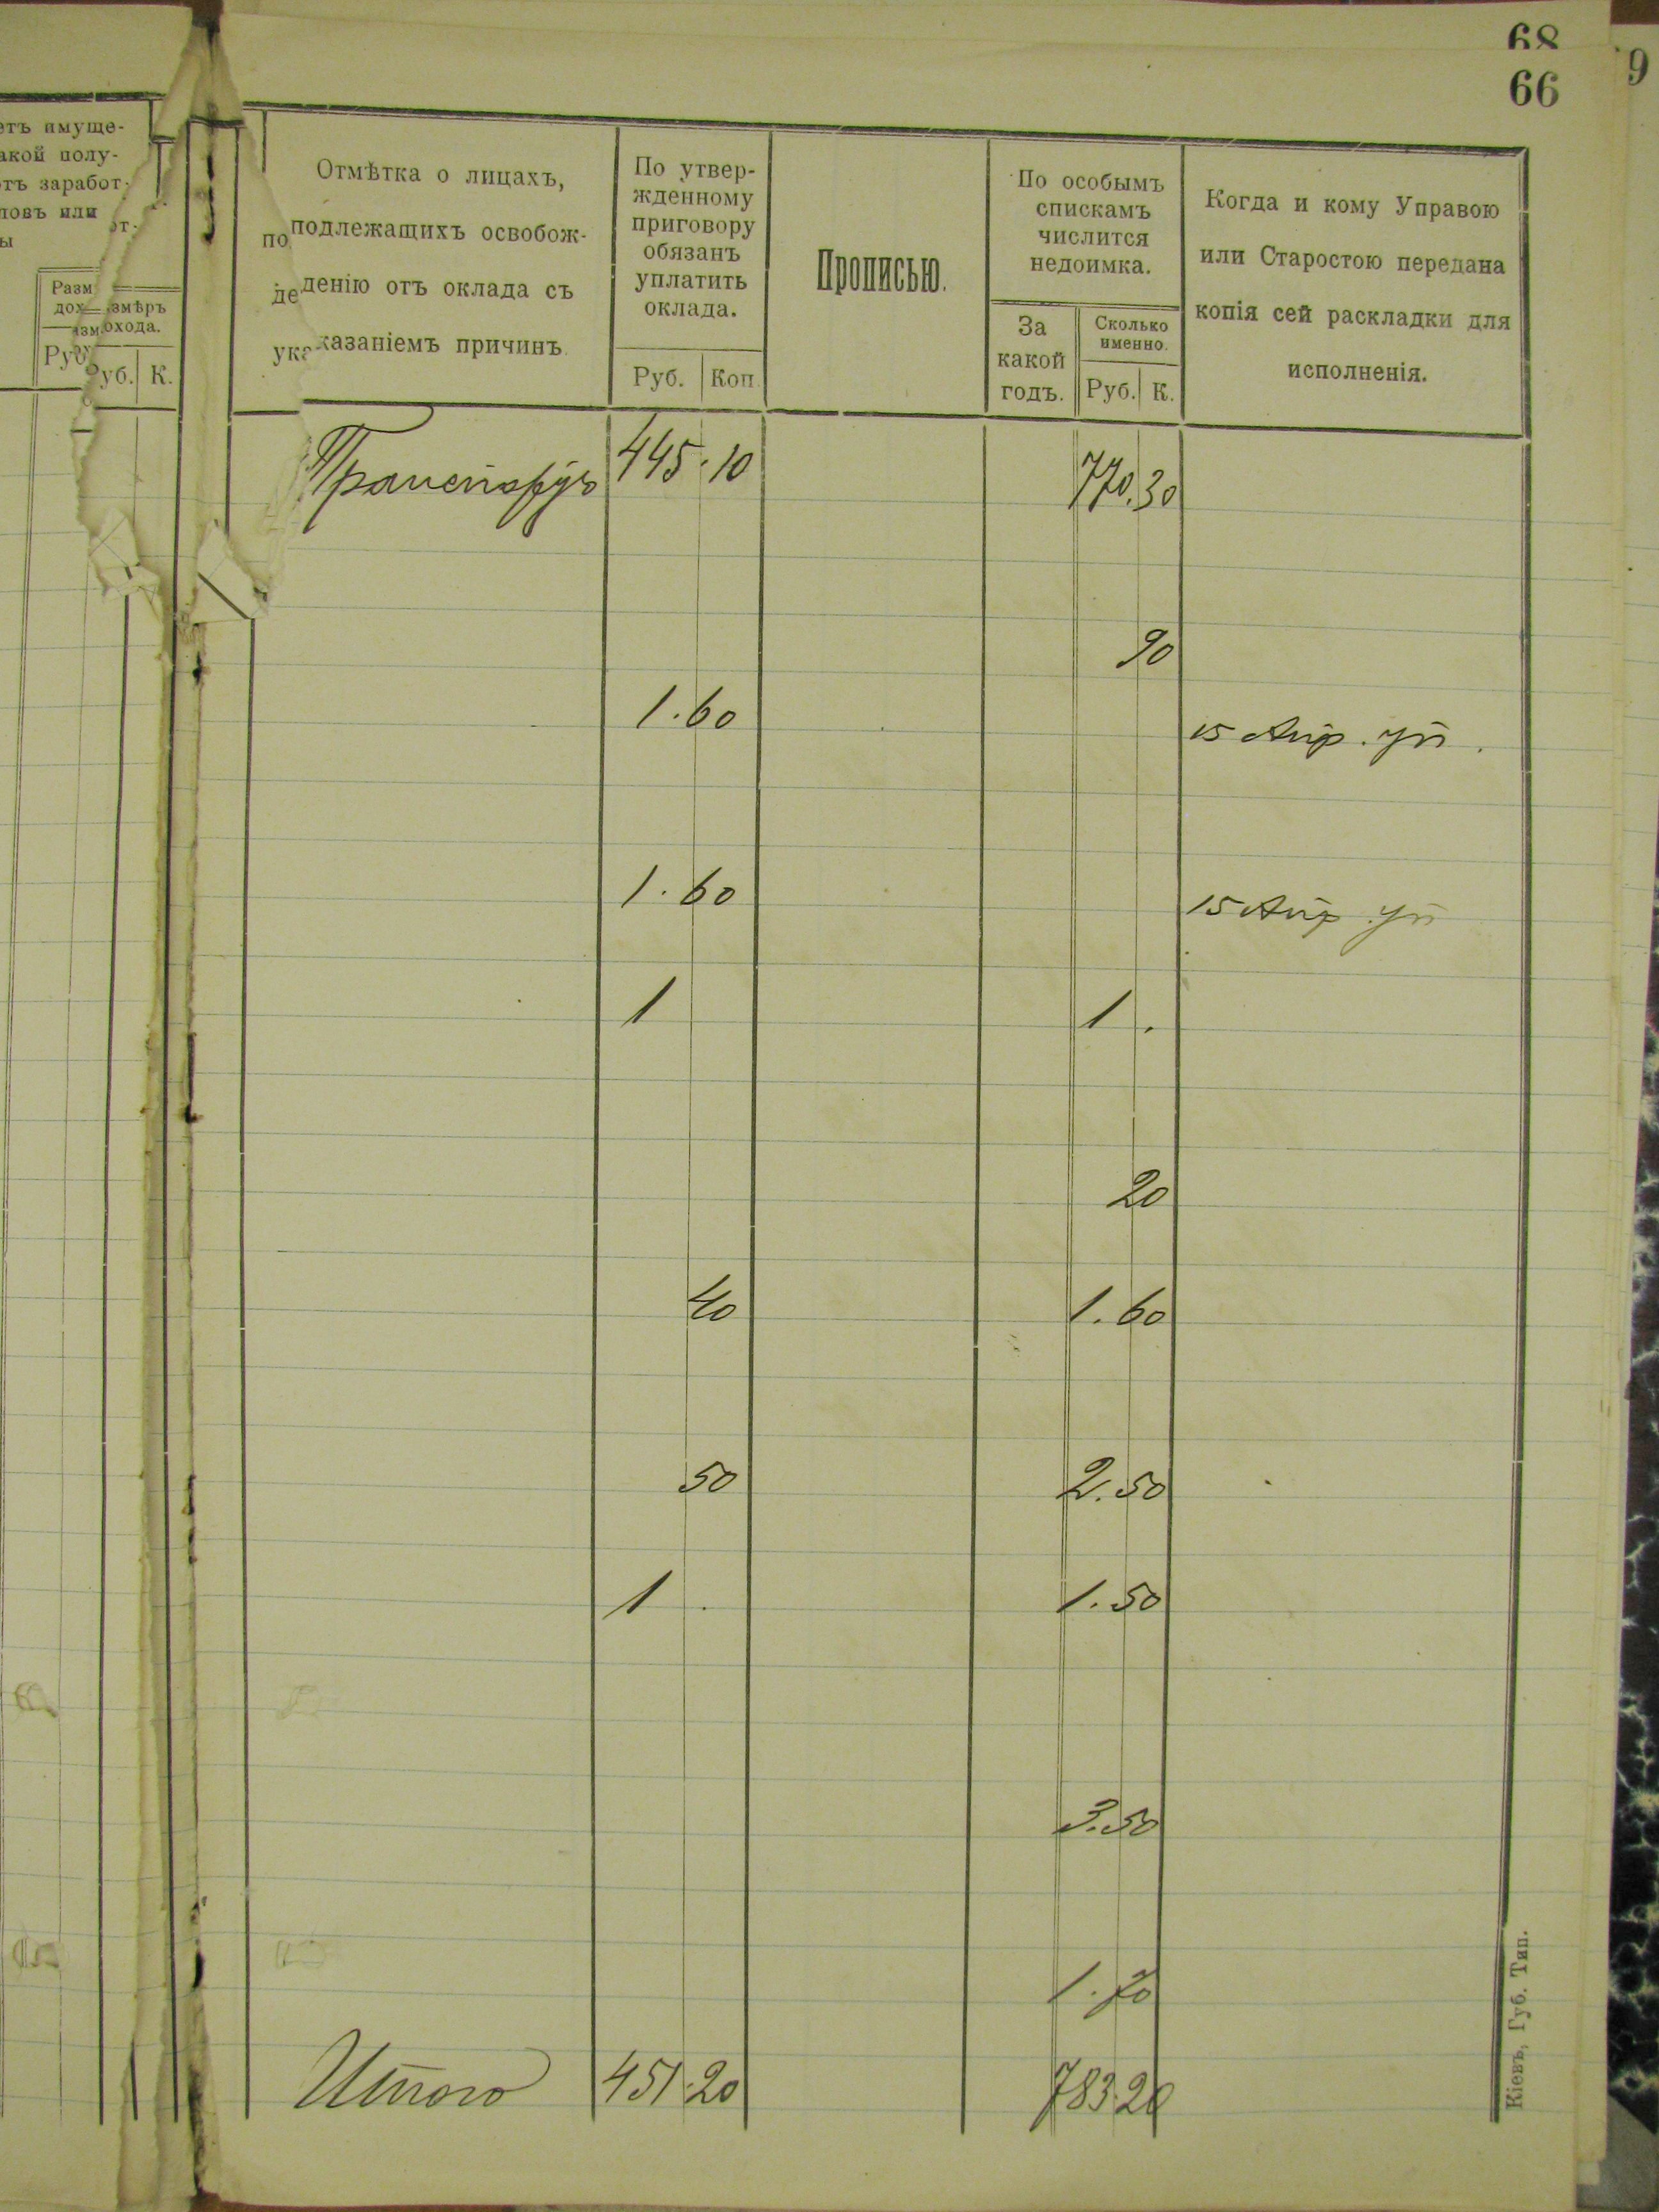 68
66
9
етъ имуще-
акой полу-
отъ заработ-
ловъ или
от-
ы
Разм
дох
змѣръ
охода.
Руб
Руб. К.
Отмѣтка о лицахъ,
подлежащихъ освобож-
денію отъ оклада съ
казаніемъ причинъ.
по
де
ука
По утвер-
жденному
приговору
обязанъ
уплатить
оклада.
Руб. Коп.
Прописью.
По особымъ
спискамъ
числится
недоимка.
За
какой
годъ.
Сколько
именно.
Руб. К.
Когда и кому Управою
или Старостою передана
копія сей раскладки для
исполненія.
Транспортъ 445.10 770.30
90
1.60 15 Апр. уп.
1.60 15 Апр уп
1 1.
20
40 1.60
50 2.50
1. 1.50
3.50
1.70
Итого 451.20 783.20
Кіевъ, Губ. Тип.